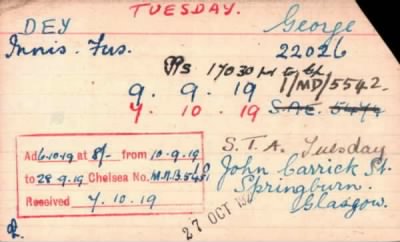 TUESDAY.
DEY George
Innis. Fus. 22026
PPs 17030
9. 9. 19 1/MD/5542.
7. 10. 19
S.T.A. Tuesday
John Carrick St.
Springburn.
Glasgow.
Ad 6.10.19 at 8/- from 10.9.19
to 28.9.19 Chelsea No.
Received 7.10.19
27 OCT